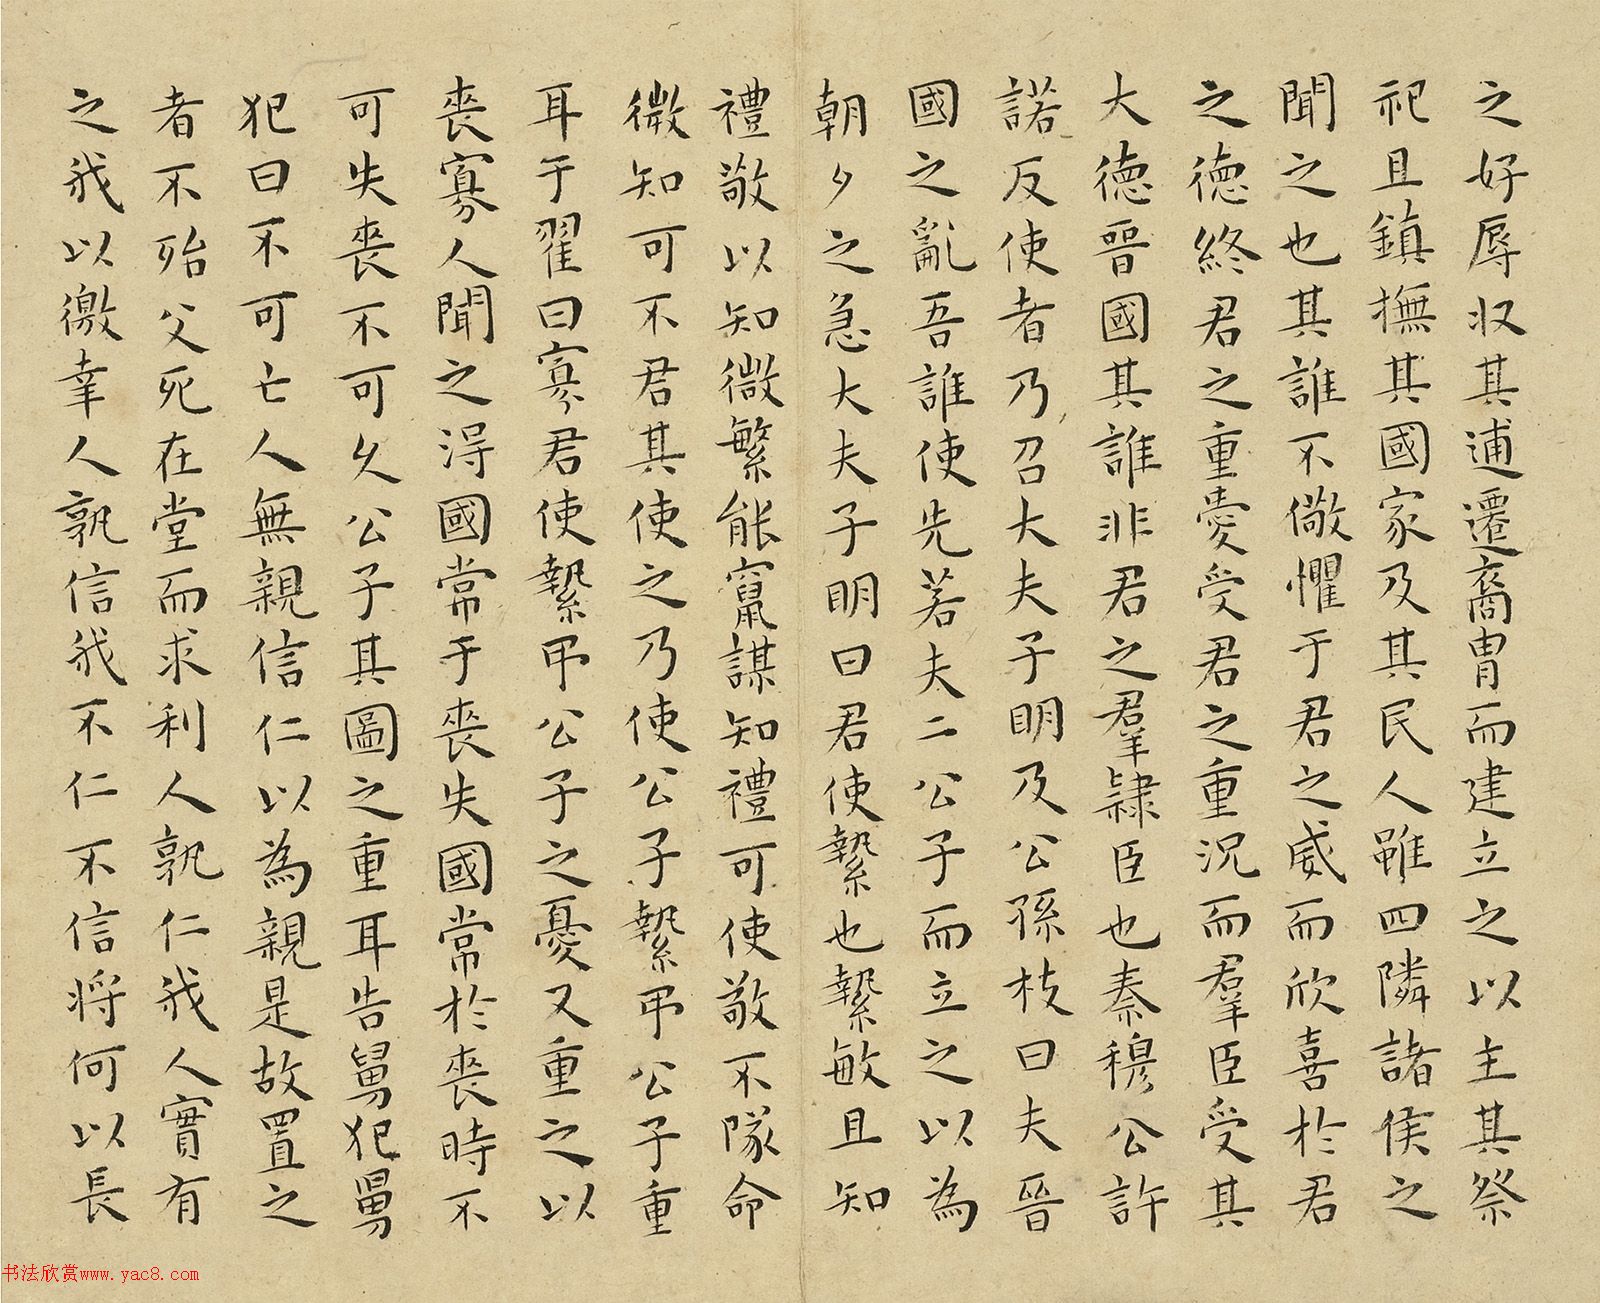 之好辱収其逋遷裔胄而建立之以主其祭
祀且鎮撫其國家及其民人雖四隣諸侯之
聞之也其誰不儆懼于君之威而欣喜於君
之徳終君之重愛受君之重況而羣臣受其
大徳晉國其誰非君之羣隷臣也秦穆公許
諾反使者乃召大夫子明及公孫枝曰夫晉
國之亂吾誰使先若夫二公子而立之以為
朝夕之急大夫子明曰君使縶也縶敏且知
禮敬以知微繁能竄謀知禮可使敬不隊命
微知可不君其使之乃使公子縶弔公子重
耳于翟曰寡君使縶弔公子之憂又重之以
喪寡人聞之淂國常于喪失國常於喪時不
可失喪不可久公子其圖之重耳告舅犯舅
犯曰不可亡人無親信仁以為親是故置之
者不殆父死在堂而求利人孰仁我人實有
之我以徼幸人孰信我不仁不信将何以長
书法欣赏www.yac8.com